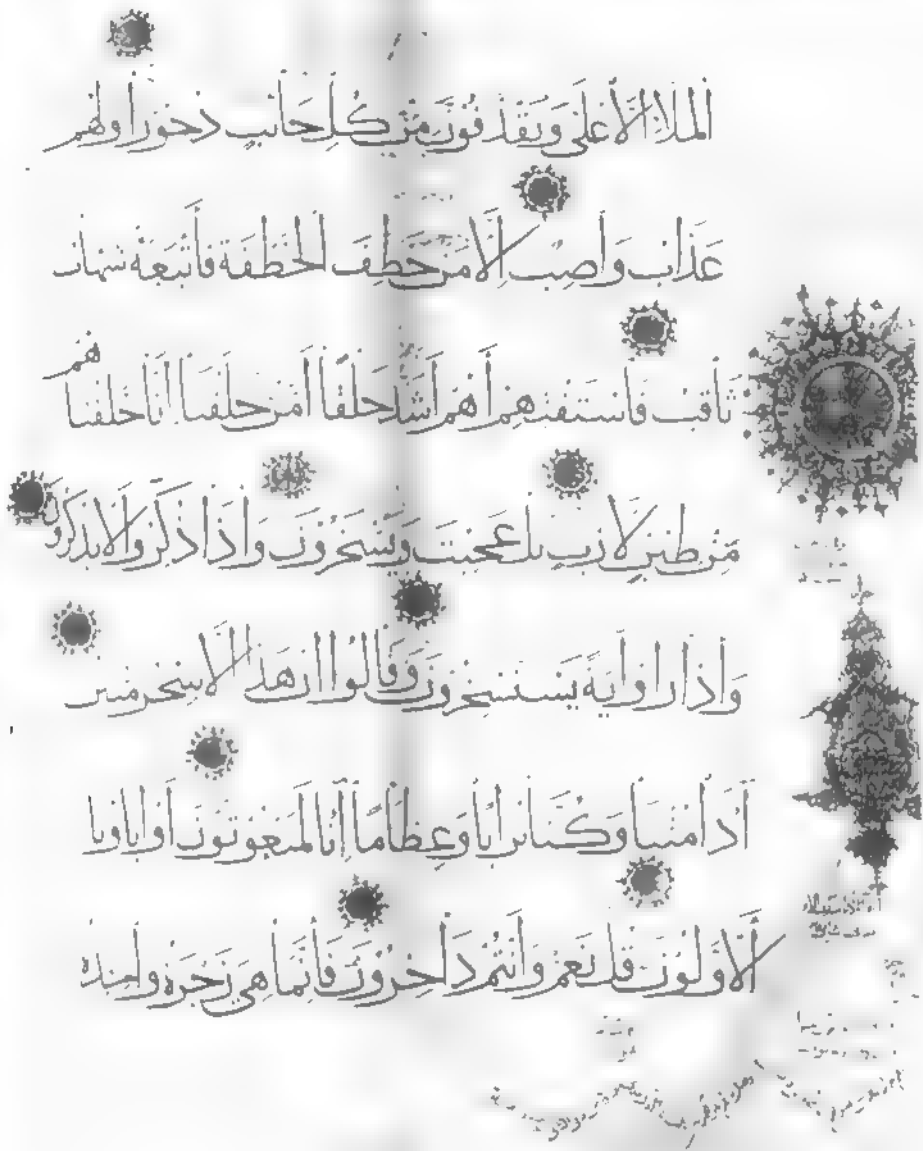 الملإ الأعلى ويقذفون من كل جانب دحورا ولهم
عذاب واصب إلا من خطف الخطفة فأتبعه شهاب
ثاقب فاستفتهم أهم أشد خلقا أمن خلقنا إنا خلقناهم
من طين لازب بل عجبت ويسخرون وإذا ذكروا لا يذكرون
وإذا راوا آية يستسخرون وقالوا إن هذا إلا سحر مبين
أإذا متنا وكنا ترابا وعظاما أإنا لمبعوثون أو آباونا
الأولون قل نعم وأنتم داخرون فإنما هي زجرة واحدة